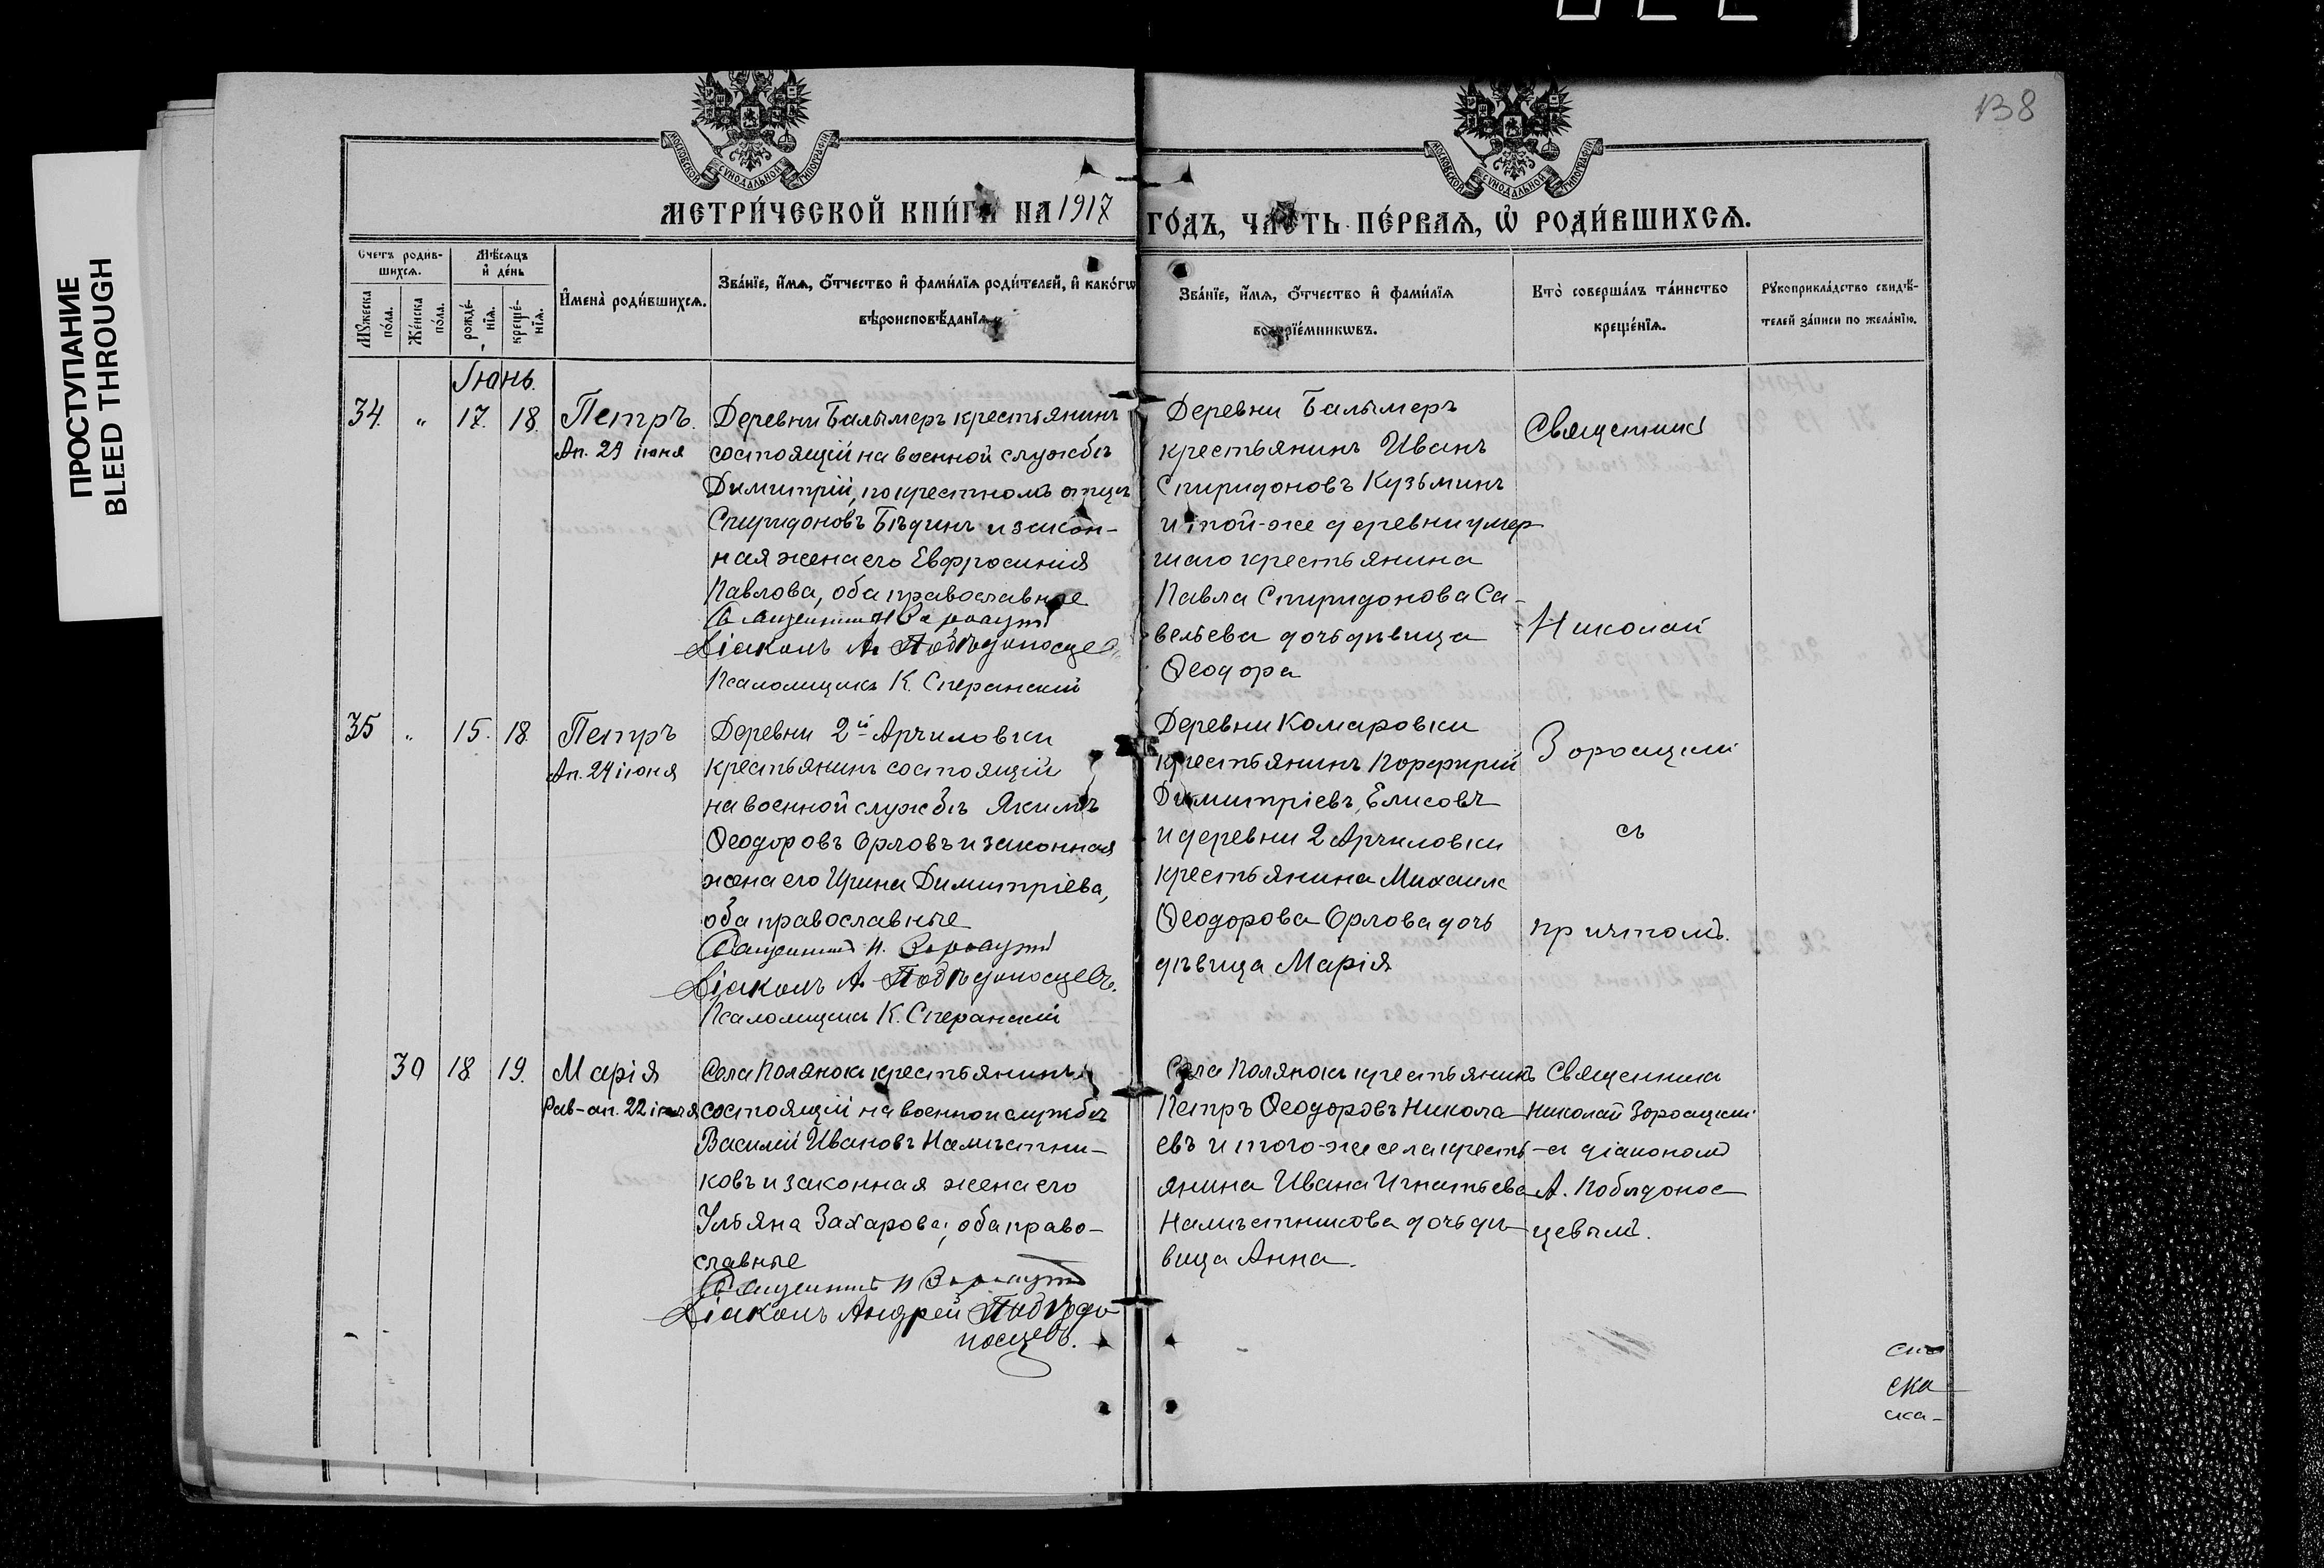 138
ПРОСТУПАНИЕ
BLEED THROUGH
МОСКОВСКОЙ СУНОДАЛЬНОЙ ТИПОГРАФІИ
МОСКОВСКОЙ СУНОДАЛЬНОЙ ТИПОГРАФІИ
МЕТРИ́ЧЕСКОЙ КНИ́ГИ НА 1917
ГО́ДЪ, ЧА́СТЬ ПЕ́РВАѦ, Ѡ҆ РОДИ́ВШИХСѦ.
Счетъ родив-
шихсѧ.
Мꙋжеска
по́ла.
Же́нска
по́ла.
Мѣ́сѧцъ
и҆ де́нь
рожде́-
нїѧ.
креще́-
нїѧ.
И҆мена̀ роди́вшихсѧ.
Зва́нїе, и҆́мѧ, ѻ҆́тчество и҆ фами́лїѧ роди́телей, и҆ како́гѡ
вѣроисповѣ́данїѧ.
Зва́нїе, и҆́мѧ, ѻ҆́тчество и҆ фами́лїѧ
воспрїе́мникѡвъ.
Кто̀ соверша́лъ та́инство
креще́нїѧ.
Рꙋкоприкла́дство свидѣ́-
телей за́писи по жела́нїю.
Іюнь.
34. " 17. 18. Петръ.
Ап. 29 іюня
Деревни Балымеръ крестьянинъ
состоящій на военной службѣ
Димитрій, по крестномъ отцѣ
Спиридоновъ Бѣдинъ и закон-
ная жена его Евфросинія
Павлова, оба православные
Священникъ Н.
Діаконъ А. Побѣдоносцевъ
Псаломщикъ К. Сперанскій
Деревни Балымеръ
крестьянинъ Иванъ
Спиридоновъ Кузьминъ
и той-же деревни умер-
шаго крестьянина
Павла Спиридонова Са-
вельева дочь дѣвица
Ѳеодора
Священникъ
Николай
35 " 15. 18. Петръ
Ап. 29 іюня
Деревни 2й Арчиловки
крестьянинъ состоящій
на военной службѣ Якимъ
Ѳеодоровъ Орловъ и законная
жена его Ирина Димитріева,
оба православные
Священникъ Н.
Діаконъ А. Побѣдоносцевъ.
Псаломщикъ К. Сперанскій
Деревни Комаровки
крестьянинъ Порфирій
Димитріевъ Елисовъ
и деревни 2 Арчиловки
крестьянина Михаила
Ѳеодорова Орлова дочь
дѣвица Марія
съ
причтомъ.
30 18 19. Марія
Рав-ап. 22 іюля
Села Полянокъ крестьянинъ
состоящій на военной службѣ
Василій Ивановъ Намѣстни-
ковъ и законная жена его
Ульяна Захарова; оба право-
славные
Священникъ Н
Діаконъ Андрей Побѣдо
носцевъ.
Села Полянокъ крестьянинъ
Петръ Ѳеодоровъ Никола-
евъ и того-же села кресть-
янина Ивана Игнатьева
Намѣстникова дочь дѣ-
вица Анна.
Священникъ
Николай
съ діакономъ
А. Побѣдонос-
цевымъ.
ска